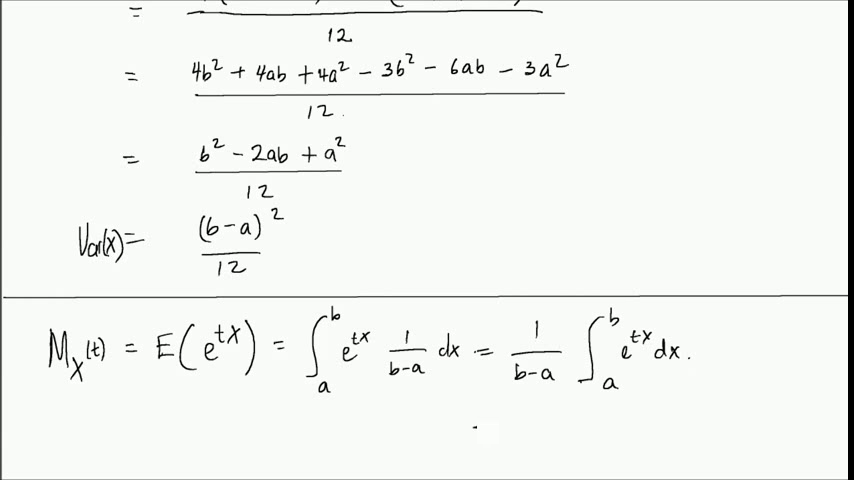 =
12
= 4b² + 4ab + 4a² - 3b² - 6ab - 3a²
12
= b² - 2ab + a²
12
Var(X) = (b-a)²
12
M_X(t) = E(e^{tX}) = ∫_a^b e^{tx} 1/(b-a) dx = 1/(b-a) ∫_a^b e^{tx} dx.